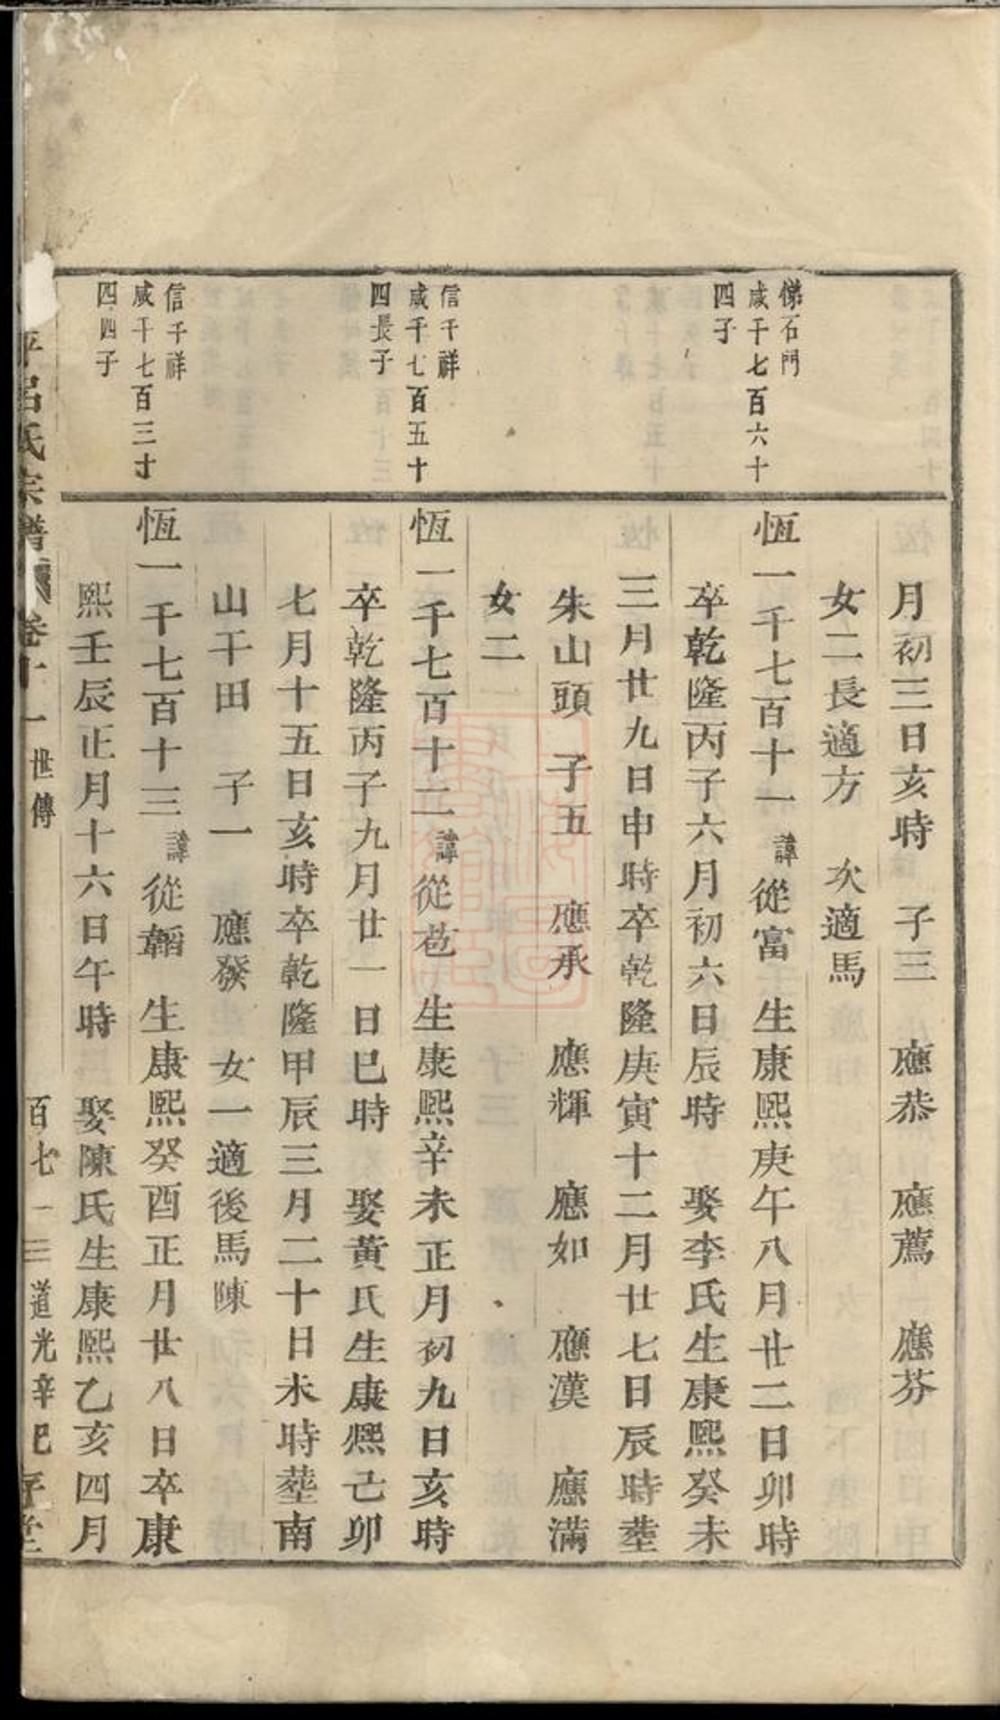 月初三日亥時　子三　應恭　應薦　應芬
女二長適方　次適馬
悌石門
咸千七百六十
四子
恆一千七百十一諱從富　生康熙庚午八月廿二日卯時
卒乾隆丙子六月初六日辰時　娶李氏生康熙癸未
三月廿九日申時卒乾隆庚寅十二月廿七日辰時塟
朱山頭　子五　應承　應輝　應如　應漢　應滿
女二
信千祥
咸千七百五十
四長子
恆一千七百十二諱從苞　生康熙辛未正月初九日亥時
卒乾隆丙子九月廿一日巳時　娶黃氏生康熙己卯
七月十五日亥時卒乾隆甲辰三月二十日未時塟南
山干田　子一　應發　女一適後馬陳
信千祥
咸千七百三寸
四四子
恆一千七百十三諱從韜　生康熙癸酉正月廿八日卒康
熙壬辰正月十六日午時　娶陳氏生康熙乙亥四月
平呂氏宗譜　卷十一世傳　百七一三道光辛巳　堂